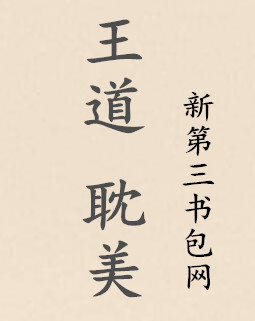 王道 耽美
新第三书包网